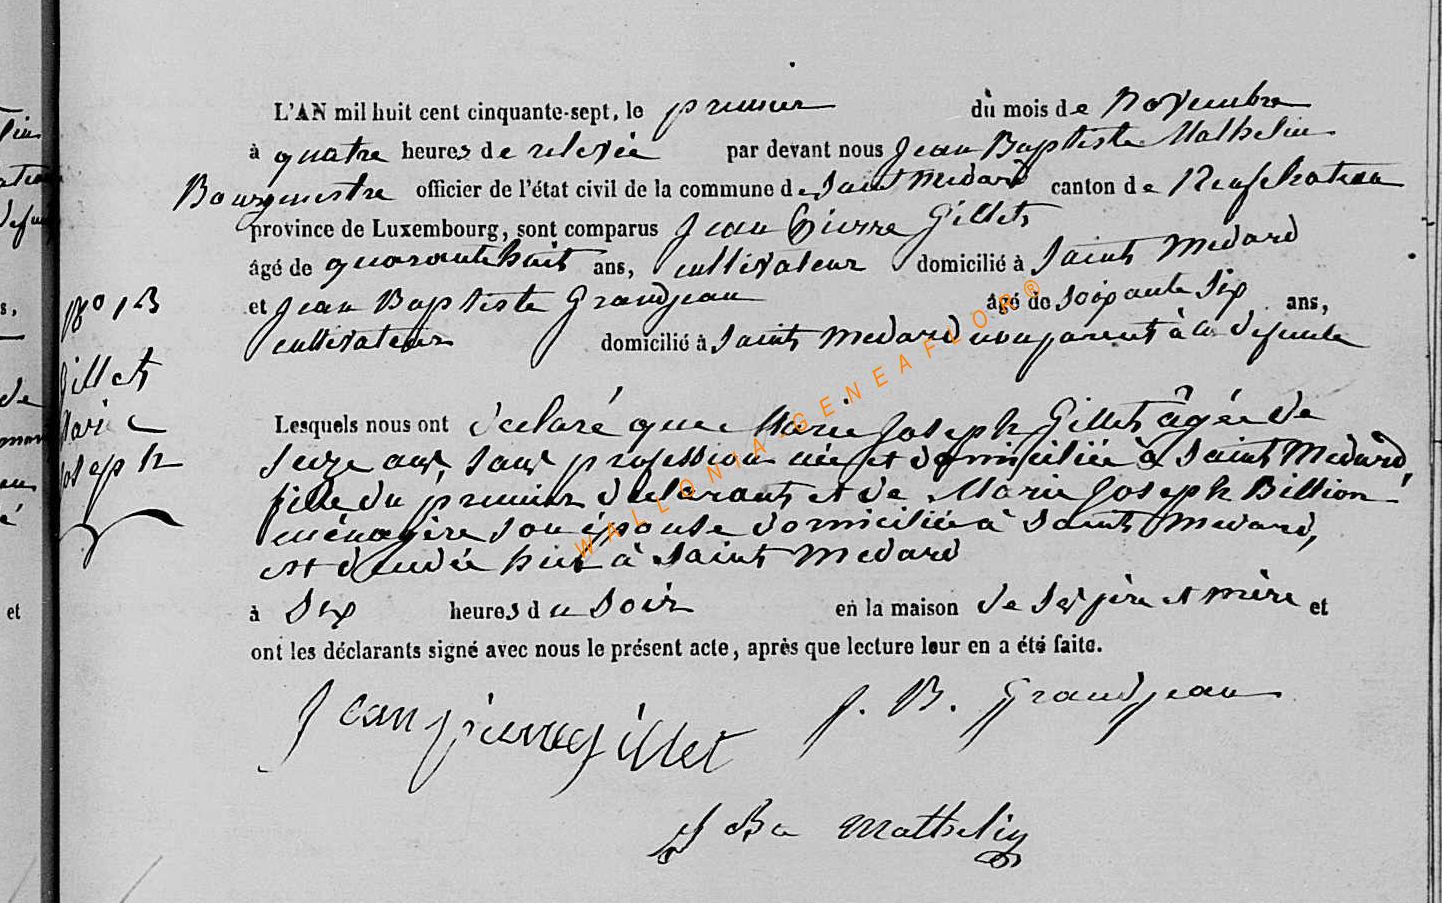 L'AN mil huit cent cinquante-sept, le premier du mois de Novembre
à quatre heures de relevée par devant nous Jean Baptiste Mathelin
Bourgmestre officier de l'état civil de la commune de Saint Medard canton de Neufchateau
province de Luxembourg, sont comparus Jean Pierre Gillet
âgé de quarante huit ans, cultivateur domicilié à Saint Medard
et Jean Baptiste Grandjean âgé de soixante six ans,
cultivateur domicilié à Saint Medard non parent à la defunte
N° 13
Gillet
Marie
Joseph
Lesquels nous ont déclaré que Marie Joseph Gillet âgée de
seize ans, sans profession née et domiciliée à Saint Medard,
fille du premier déclarant et de Marie Joseph Billion
ménagère son épouse domiciliée à Saint Medard,
est décédée hier à Saint Medard
à six heures du soir en la maison de ses père et mère et
ont les déclarants signé avec nous le présent acte, après que lecture leur en a été faite.
Jean pierre gillet J. B. Grandjean
J Bte Mathelin
WALLONIA-GENEAFLOR®
et